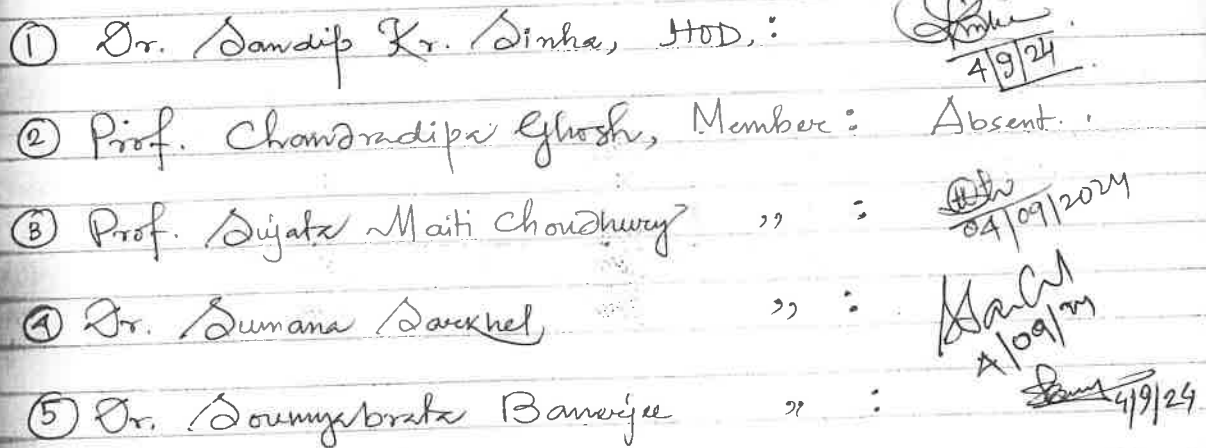 ① Dr. Sandip Kr. Sinha, HOD, :
4/9/24
② Prof. Chandradipa Ghosh, Member : Absent.
③ Prof. Sujata Maiti Choudhury " : 04/09/2024
④ Dr. Sumana Sarkhel, " :
4/09/24
⑤ Dr. Soumyabrata Banerjee " : 4/9/24